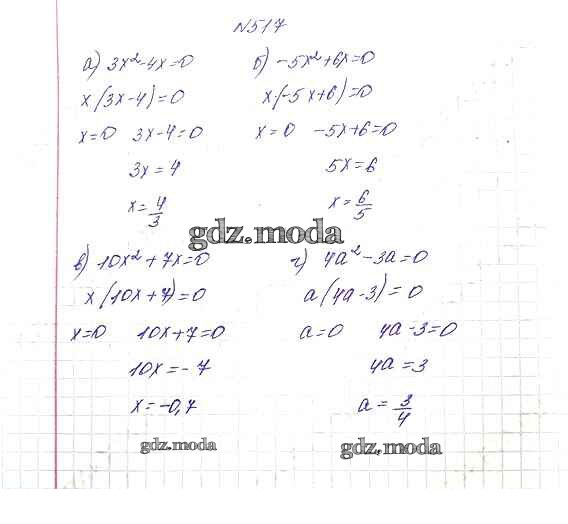 №517
а) 3x²-4x=0
x(3x-4)=0
x=0 3x-4=0
3x=4
x=4/3
б) -5x²+6x=0
x·(-5x+6)=0
x=0 -5x+6=0
5x=6
x=6/5
gdz.moda
в) 10x²+7x=0
x(10x+7)=0
x=0 10x+7=0
10x=-7
x=-0,7
gdz.moda
г) 4a²-3a=0
a(4a-3)=0
a=0 4a-3=0
4a=3
a=3/4
gdz.moda